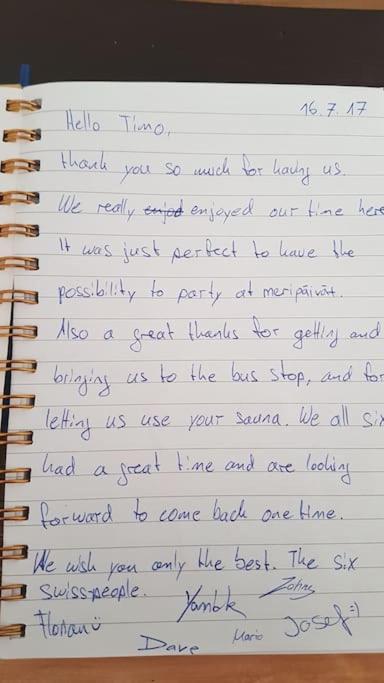 16.7.17
Hello Timo,
thank you so much for having us.
We really enjod enjoyed our time here
It was just perfect to have the
possibility to party at meripäivät.
Also a great thanks for getting and
bringing us to the bus stop, and for
letting us use your sauna. We all six
had a great time and are looking
forward to come back one time.
We wish you only the best. The six
Swisspeople.
Florian
Dave
Mario
Josef :)